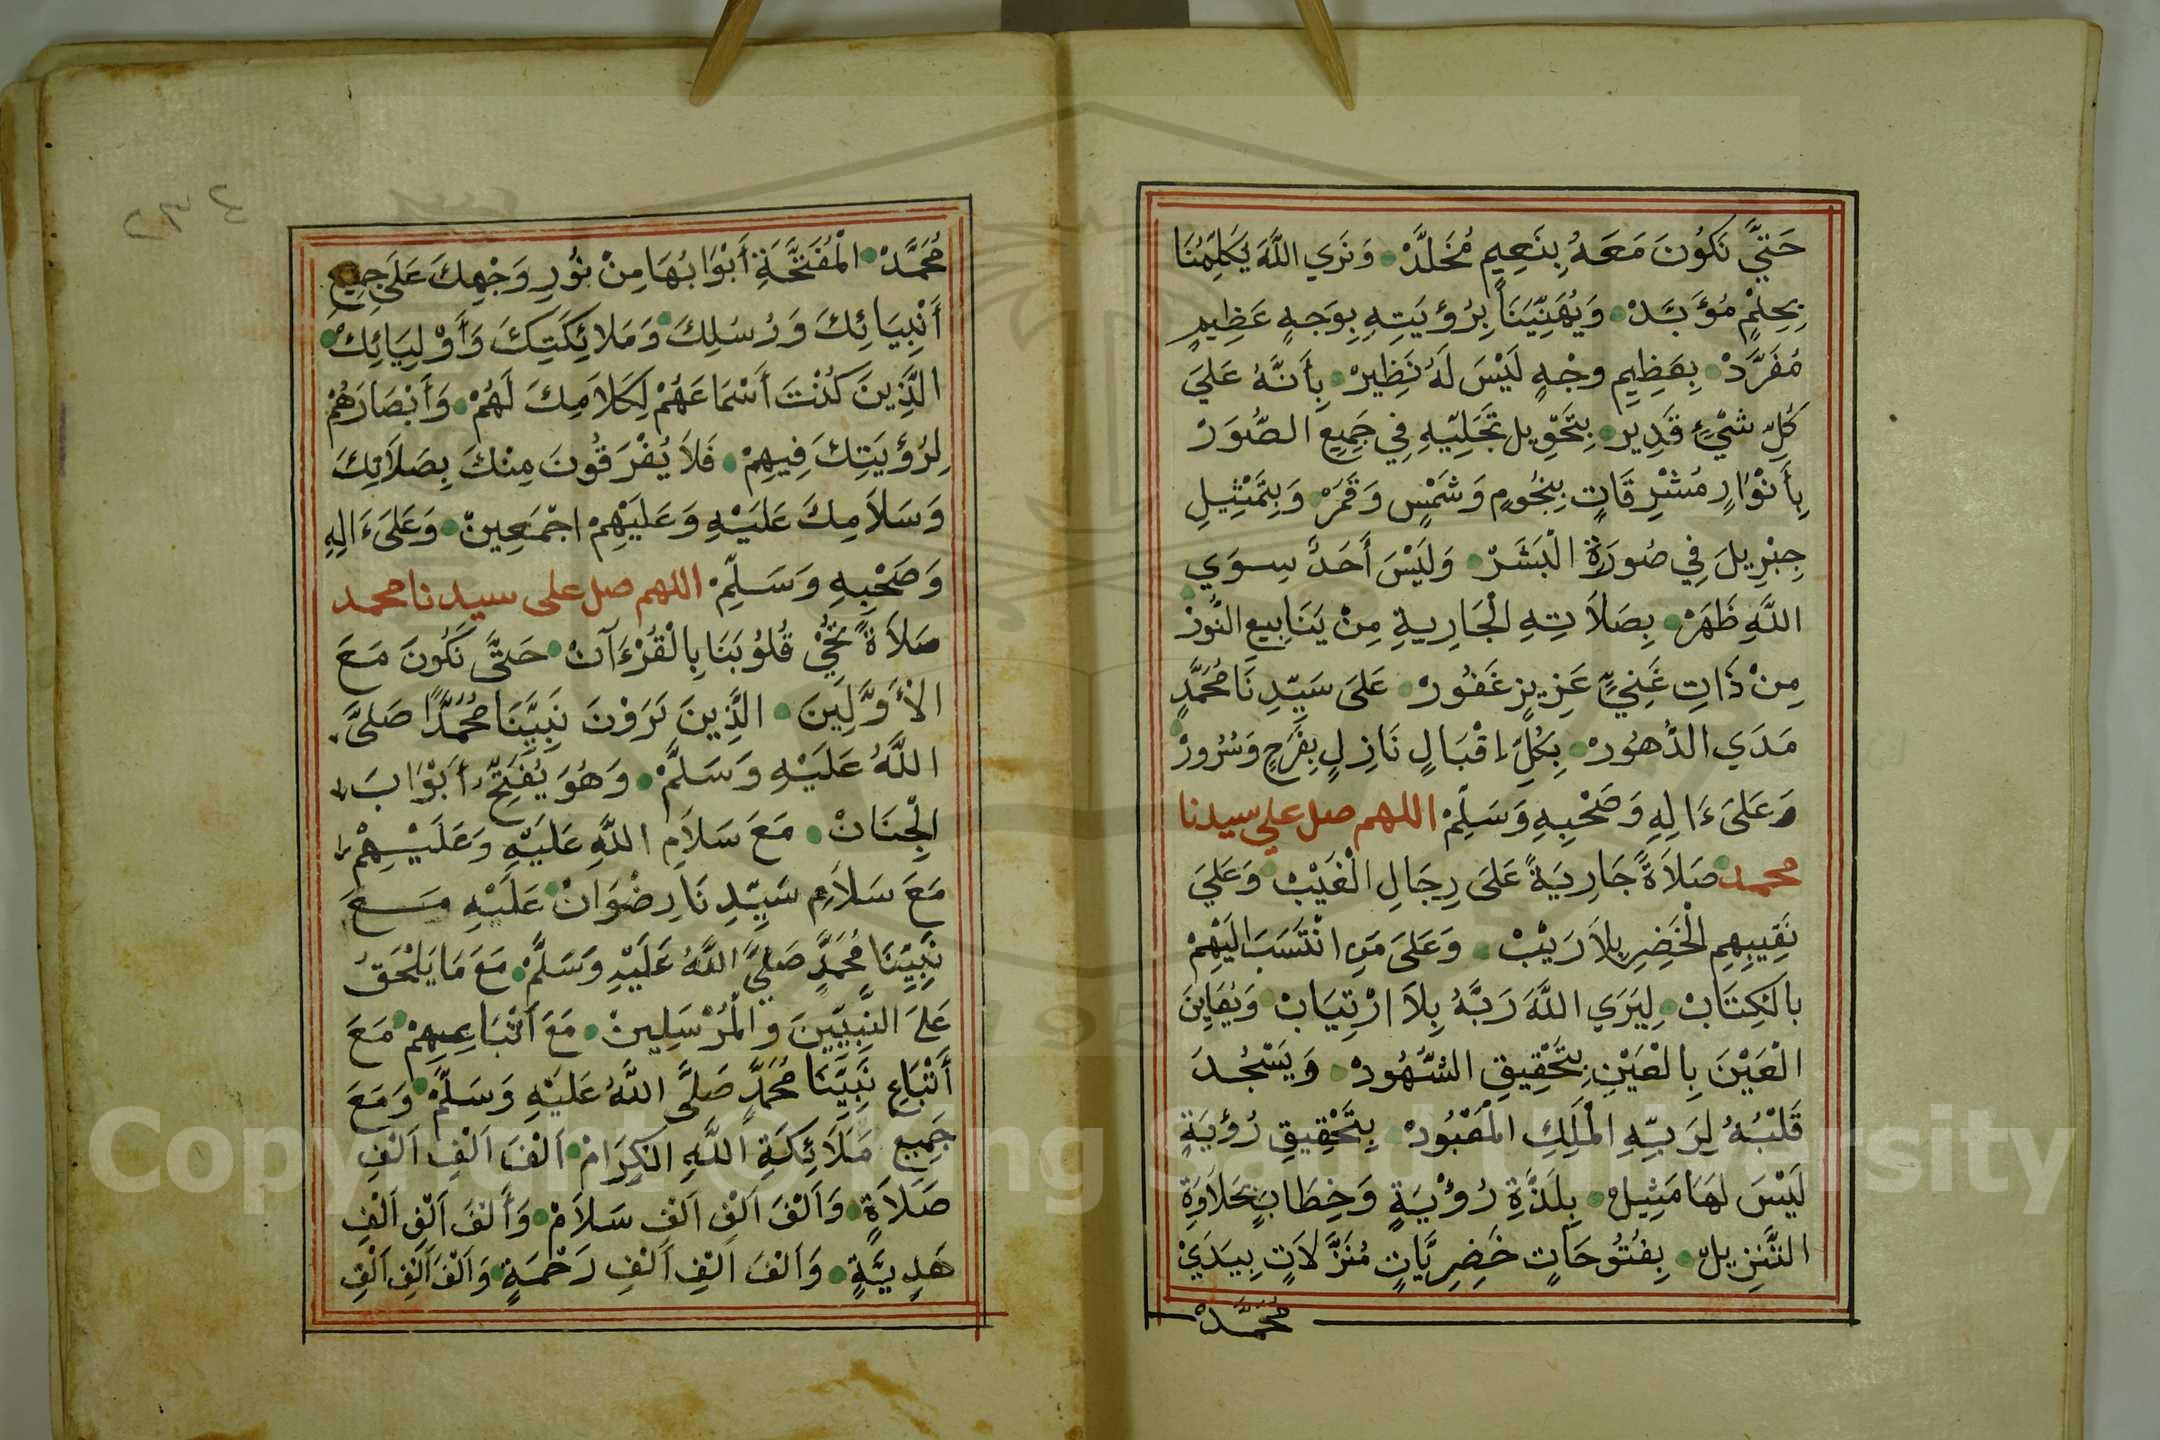 حَتَّي نَكُونَ مَعَهُ بِنَعِيمٍ مُخَلَّدْ وَنَرَي اللَّهَ يُكَلِّمُنَا
بِحِلْمٍ مُؤَبَّدْ وَيُهَنِّيَنَا بِرُؤيَتِهِ بِوَجهٍ عَظِيمٍ
مُفَرَّدْ بِعَظِيمِ وجْهٍ لَيْسَ لَهُ نَظِيرْ بِأَنَّهُ عَلَيَ
كُلِّ شَيْءٍ قَدِير بِتَحْوِيل تَجَلِّيهِ فِي جَمِيعِ الصُّوَرْ
بِأَنْوَارٍ مُشْرِقَاتٍ بِنجُومٍ وَشَمْسٍ وَقَمَرْ وَبِتَمْثِيلِ
جِبْرِيلَ فِي صُورَةِ الْبَشَرْ وَلَيْسَ أَحَدٌ سِوَي
اللَّهِ ظَهَرْ بِصَلاَتِهِ الْجَارِيةِ مِنْ يَنَابِيعِ النُّورْ
مِنْ ذَاتِ غَنِيٍّ عَزِيزٍ غَفُورْ عَلَى سَيِّدِنَا مُحَمَّدٍ
مَدَي الدُّهُورْ بِكُلِّ اقْبَالٍ نَازِلٍ بِفَرَحٍ وَسُرُورْ
وَعَلَىَ ءَالِهِ وَصَحْبِهِ وَسَلِّمْ اللهم صل علي سيدنا
محمد صَلاَةً جَارِيَةً عَلَى رِجَالِ الْغَيْبْ وَعَلَيَ
نَقِيبِهِمِ الْخَضِرِ بِلاَ رَيْبْ وَعَلَىَ مَنِ انْتَسَبَ الَيْهِمْ
بالكِتَابْ لِيَرَي اللَّهَ رَبَّهُ بِلاَ ارْتِيَابْ وَيُعَايِنَ
الْعَيْنَ بِالْعَيْنِ بِتَحْقِيقِ الشُّهُودْ وَيَسْجُدَ
قَلْبُهُ لِرَبِّهِ الْمَلِكِ الْمَعْبُودْ بِتَحْقِيقِ رُؤيَةٍ
لَيْسَ لَهَا مَثِيلْ بِلَذَّةِ رُؤْيَةٍ وَخِطَابٍ بحَلاَوَةِ
التَّنزِيلْ بِفُتُوحَاتٍ خَضِرِيَّاتٍ مُنَزَّلاَتٍ بِيَدَيْ
مُحَمَّدْ
٢٣٤
مُحَمَّدْ الْمُفَتَّحَةِ أَبْوَابُهَا مِنْ نُورِ وَجْهِكَ عَلَى جمِيعِ
أَنْبِيَائِكَ وَرُسُلِكَ وَمَلائِكَتِكَ وَأَوْلِيَائِكَ
الَّذِينَ كُنْتَ أَسْمَاعَهُمْ لِكَلاَمِكَ لَهُمْ وَأَبْصَارَهُمْ
لِرُؤيَتِكَ فِيهِمْ فَلاَ يُفْرَقُونَ مِنْكَ بِصَلاَتِكَ
وَسَلاَمِكَ عَلَيْهِ وَعَلَيْهِمْ اجْمَعِينْ وَعَلَىَ ءَالِهِ
وَصَحْبِهِ وَسَلِّمْ اللهم صل على سيدنا محمد
صَلاَةً تُحْيِ قُلُوبَنَا بِالْقُرْءَانْ حَتَّى نَكُونَ مَعَ
الأَوَّلِينَ الَّذِينَ يَرَوْنَ نَبِيَّنَا مُحَمَّدًا صَلَّى
اللَّهُ عَلَيْهِ وَسَلَّمْ وَهُوَ يُفَتِّحُ أَبْوَابَ
الْجِنَانْ مَعَ سَلاَمِ اللَّهِ عَلَيْهِ وَعَلَيْهِمْ
مَعَ سَلاَمِ سَيِّدِنَا رِضْوَانْ عَلَيْهِ مَعَ
نَبِيِّنَا مُحَمَّدٍ صَلَّيَ اللَّهُ عَلَيْهِ وَسَلَّمْ مَعَ مَا يَلْحَقُ
عَلَى النَّبِيِّينَ وَالْمُرْسَلِينْ مَعَ أَتْبَاعِهِمْ مَعَ
أَتْبَاعِ نَبِيِّنَا مُحَمَّدٍ صَلَّى اللَّهُ عَلَيْهِ وَسَلَّمْ وَمَعَ
جَمِيعِ مَلاَئِكَةِ اللَّهِ الكِرَامْ اَلْفَ اَلْفِ اَلْفِ
صَلاَةٍ وَاَلْفَ اَلْفِ اَلْفِ سَلاَمْ وَأَلْفَ اَلْفِ اَلْفِ
هَدِيَّةٍ وَاَلْفَ اَلْفِ اَلْفِ رَحْمَةٍ وَاَلْفَ اَلْفِ اَلْفِ
1957
Copyright © King Saud University